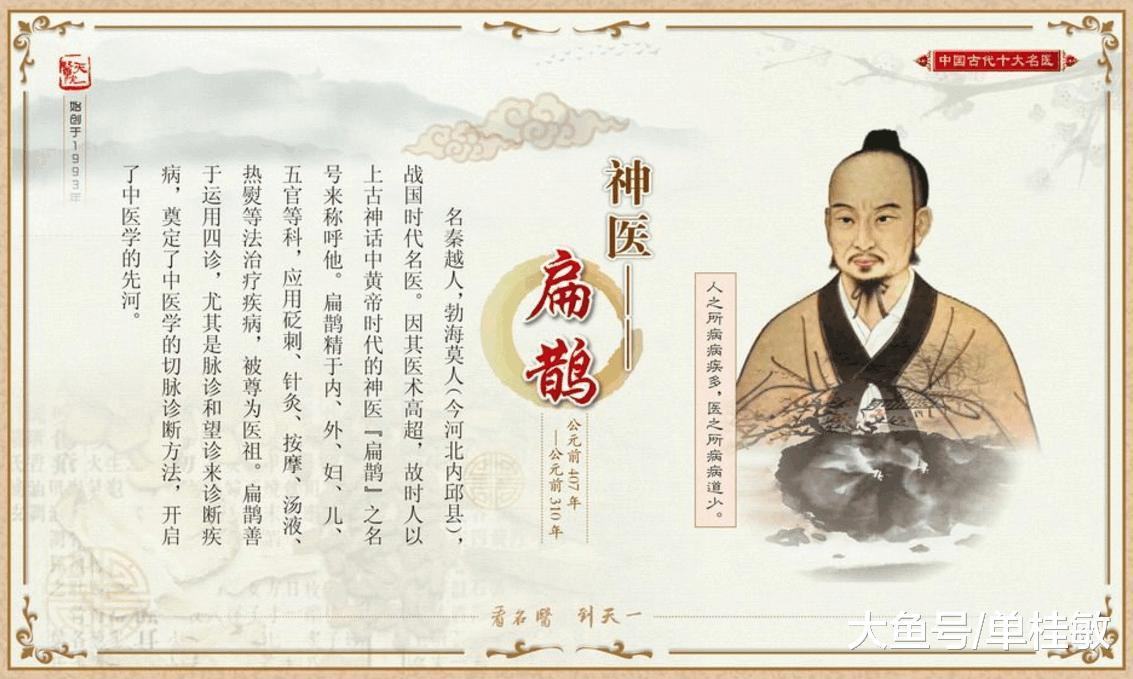 中国古代十大名医
天一醫院
始创于1993年
神医——
扁鹊
公元前407年
—公元前310年
人之所病病疾多，医之所病病道少。
名秦越人，勃海莫人（今河北内邱县），
战国时代名医。因其医术高超，故时人以
上古神话中黄帝时代的神医『扁鹊』之名
号来称呼他。扁鹊精于内、外、妇、儿、
五官等科，应用砭刺、针灸、按摩、汤液、
热熨等法治疗疾病，被尊为医祖。扁鹊善
于运用四诊，尤其是脉诊和望诊来诊断疾
病，奠定了中医学的切脉诊断方法，开启
了中医学的先河。
看名醫 到天一
大鱼号/单桂敏